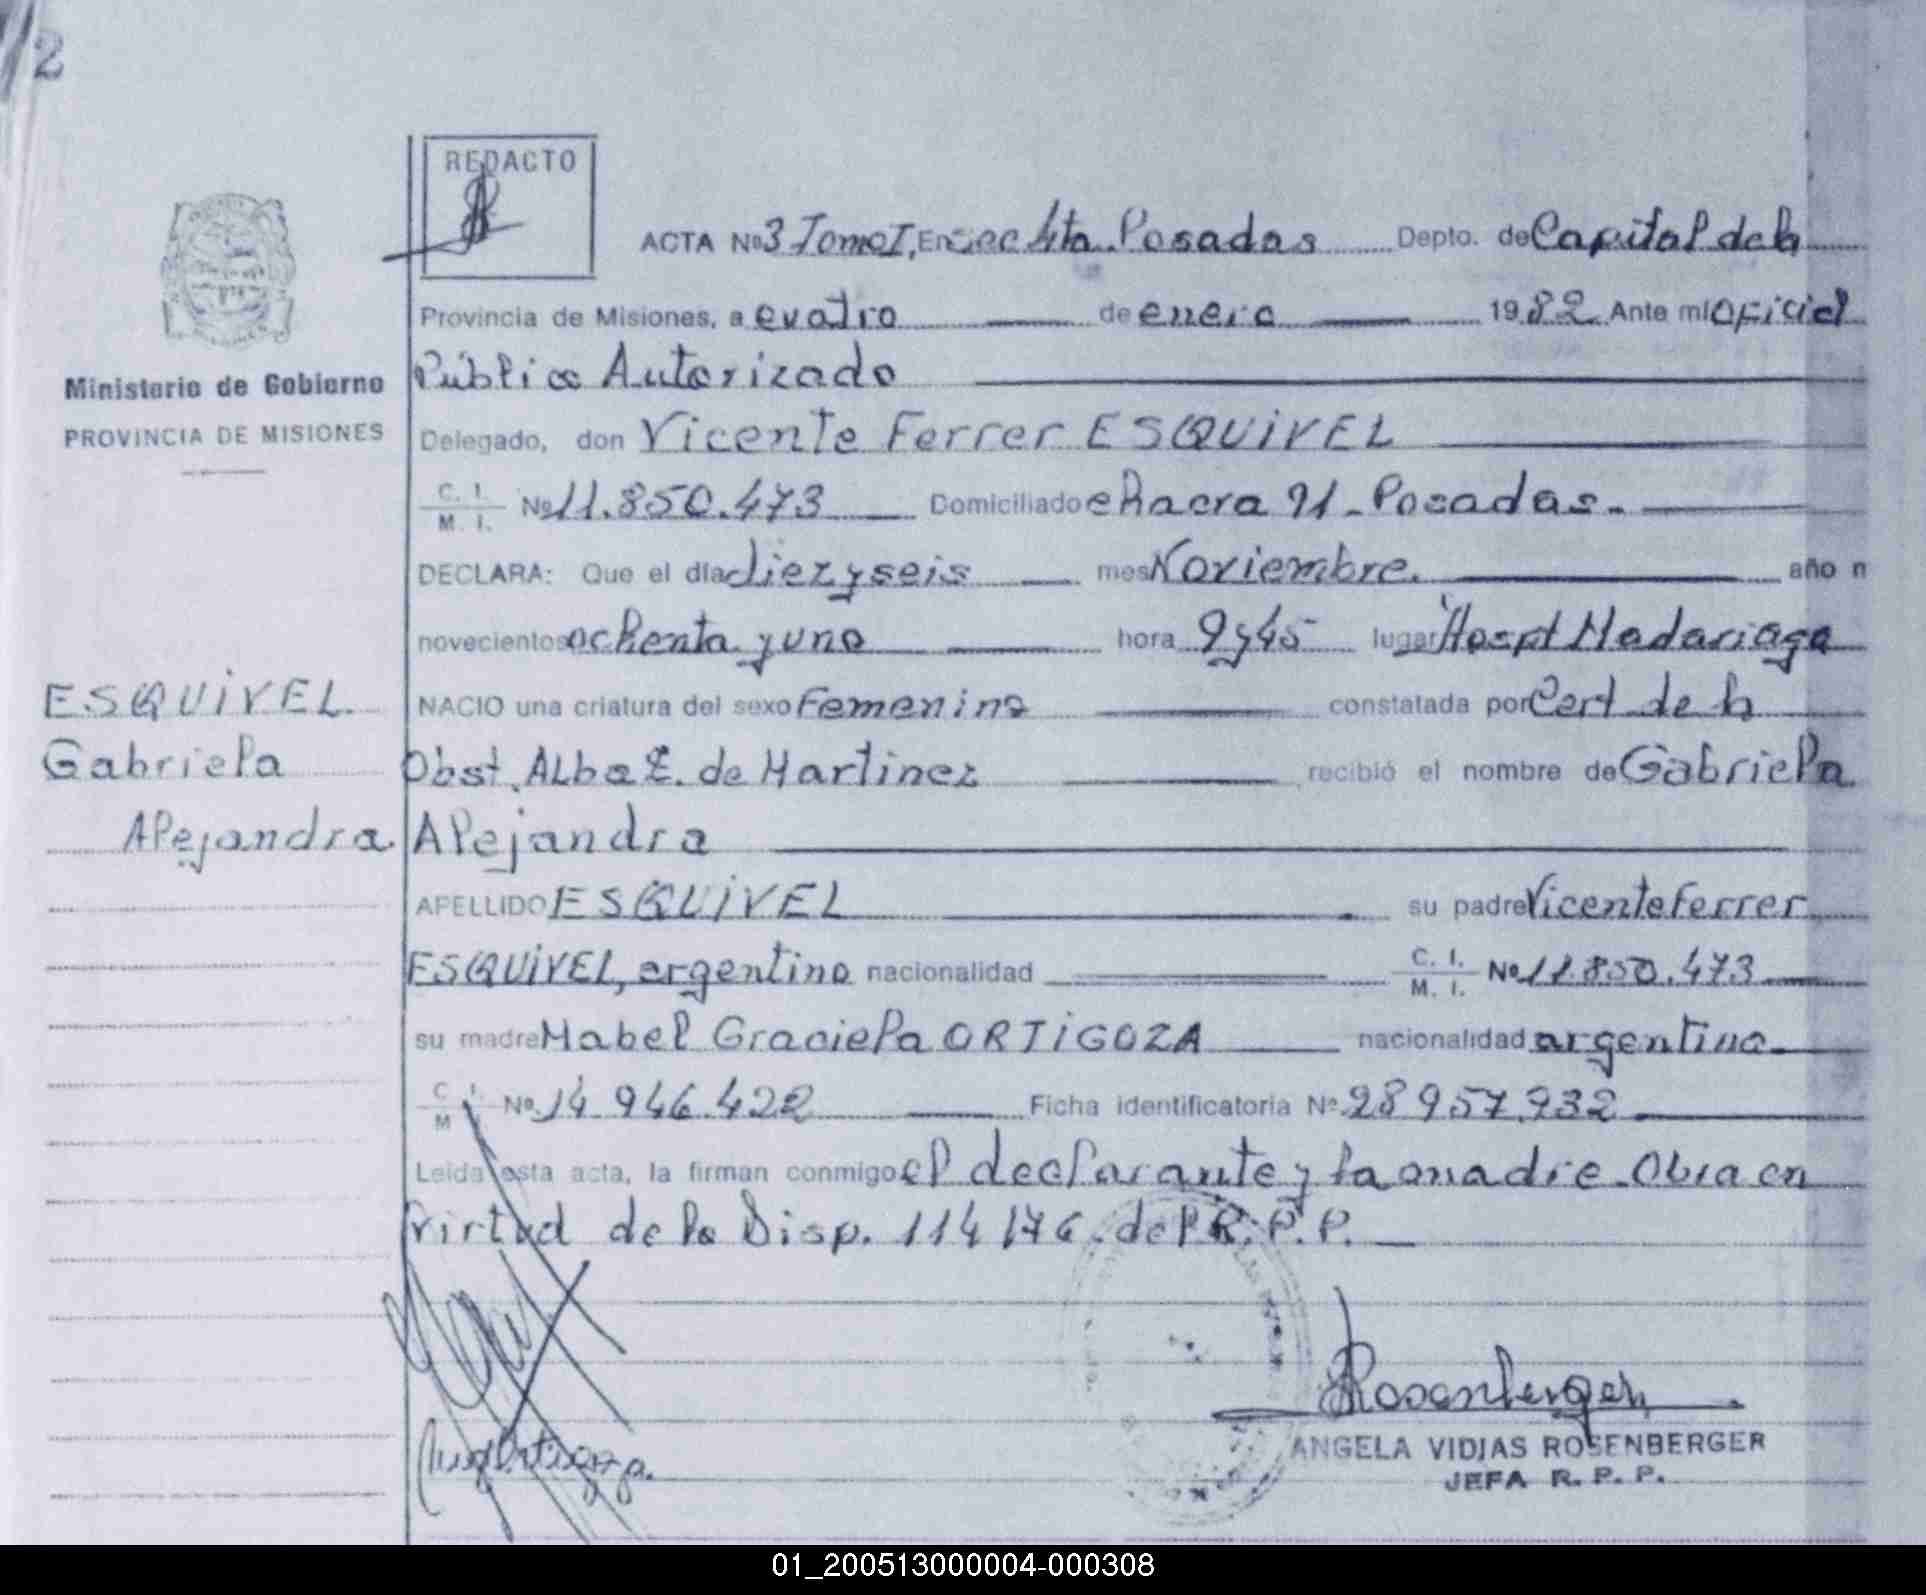 2
REDACTO
ACTA Nº 3 Tomo I, En Secc 4ta. Posadas Depto. de Capital de la
Provincia de Misiones, a cuatro de enero 1982 Ante mí Oficial
Ministerio de Gobierno
PROVINCIA DE MISIONES
Público Autorizado
Delegado, don Vicente Ferrer ESQUIVEL
C. I. M. I. Nº 11.850.473 Domiciliado chacra 91 - Posadas.-
DECLARA: Que el día diez y seis mes Noviembre. año n
novecientos ochenta y uno hora 9 y 45 lugar Hospt Madariaga
ESQUIVEL.
Gabriela
Alejandra.
NACIO una criatura del sexo Femenino constatada por Cert de la
Obst. Alba E. de Martinez recibió el nombre de Gabriela
Alejandra
APELLIDO ESQUIVEL su padre Vicente Ferrer
ESQUIVEL, argentino nacionalidad C. I. M. I. Nº 11.850.473
su madre Mabel Graciela ORTIGOZA nacionalidad argentina
C I. M Nº 14 946.422 Ficha identificatoria Nº 28 957.932
Leida esta acta, la firman conmigo el declarante y la madre. Obra en
virtud de la Disp. 114/76. del R.P.P.
Rosenberger
ANGELA VIDIAS ROSENBERGER
JEFA R. P. P.
01_200513000004-000308